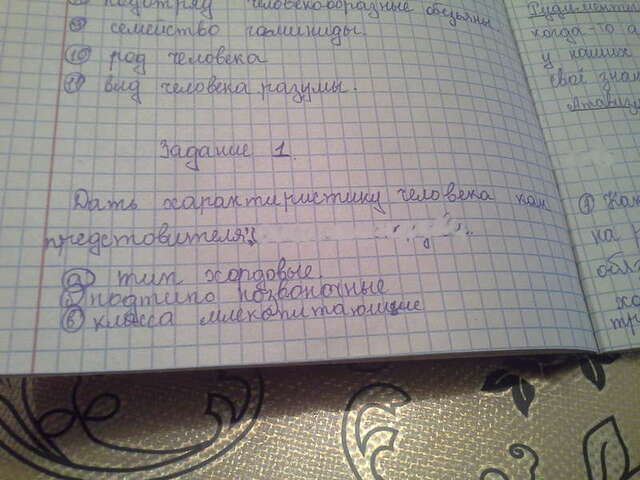 подотряд человекообразные обезьяны
⑨ семейство гоминиды.
⑩ род человека
⑪ вид человека разумы.
Задание 1.
Дать характиристику человека как
предстовителя:
а) тип хордовые.
б) подтипо позвоночные
в) класса млекопитающие
Рудименти
когда-то
у наших
своё
Атавиз
① Как
на
обла
хо